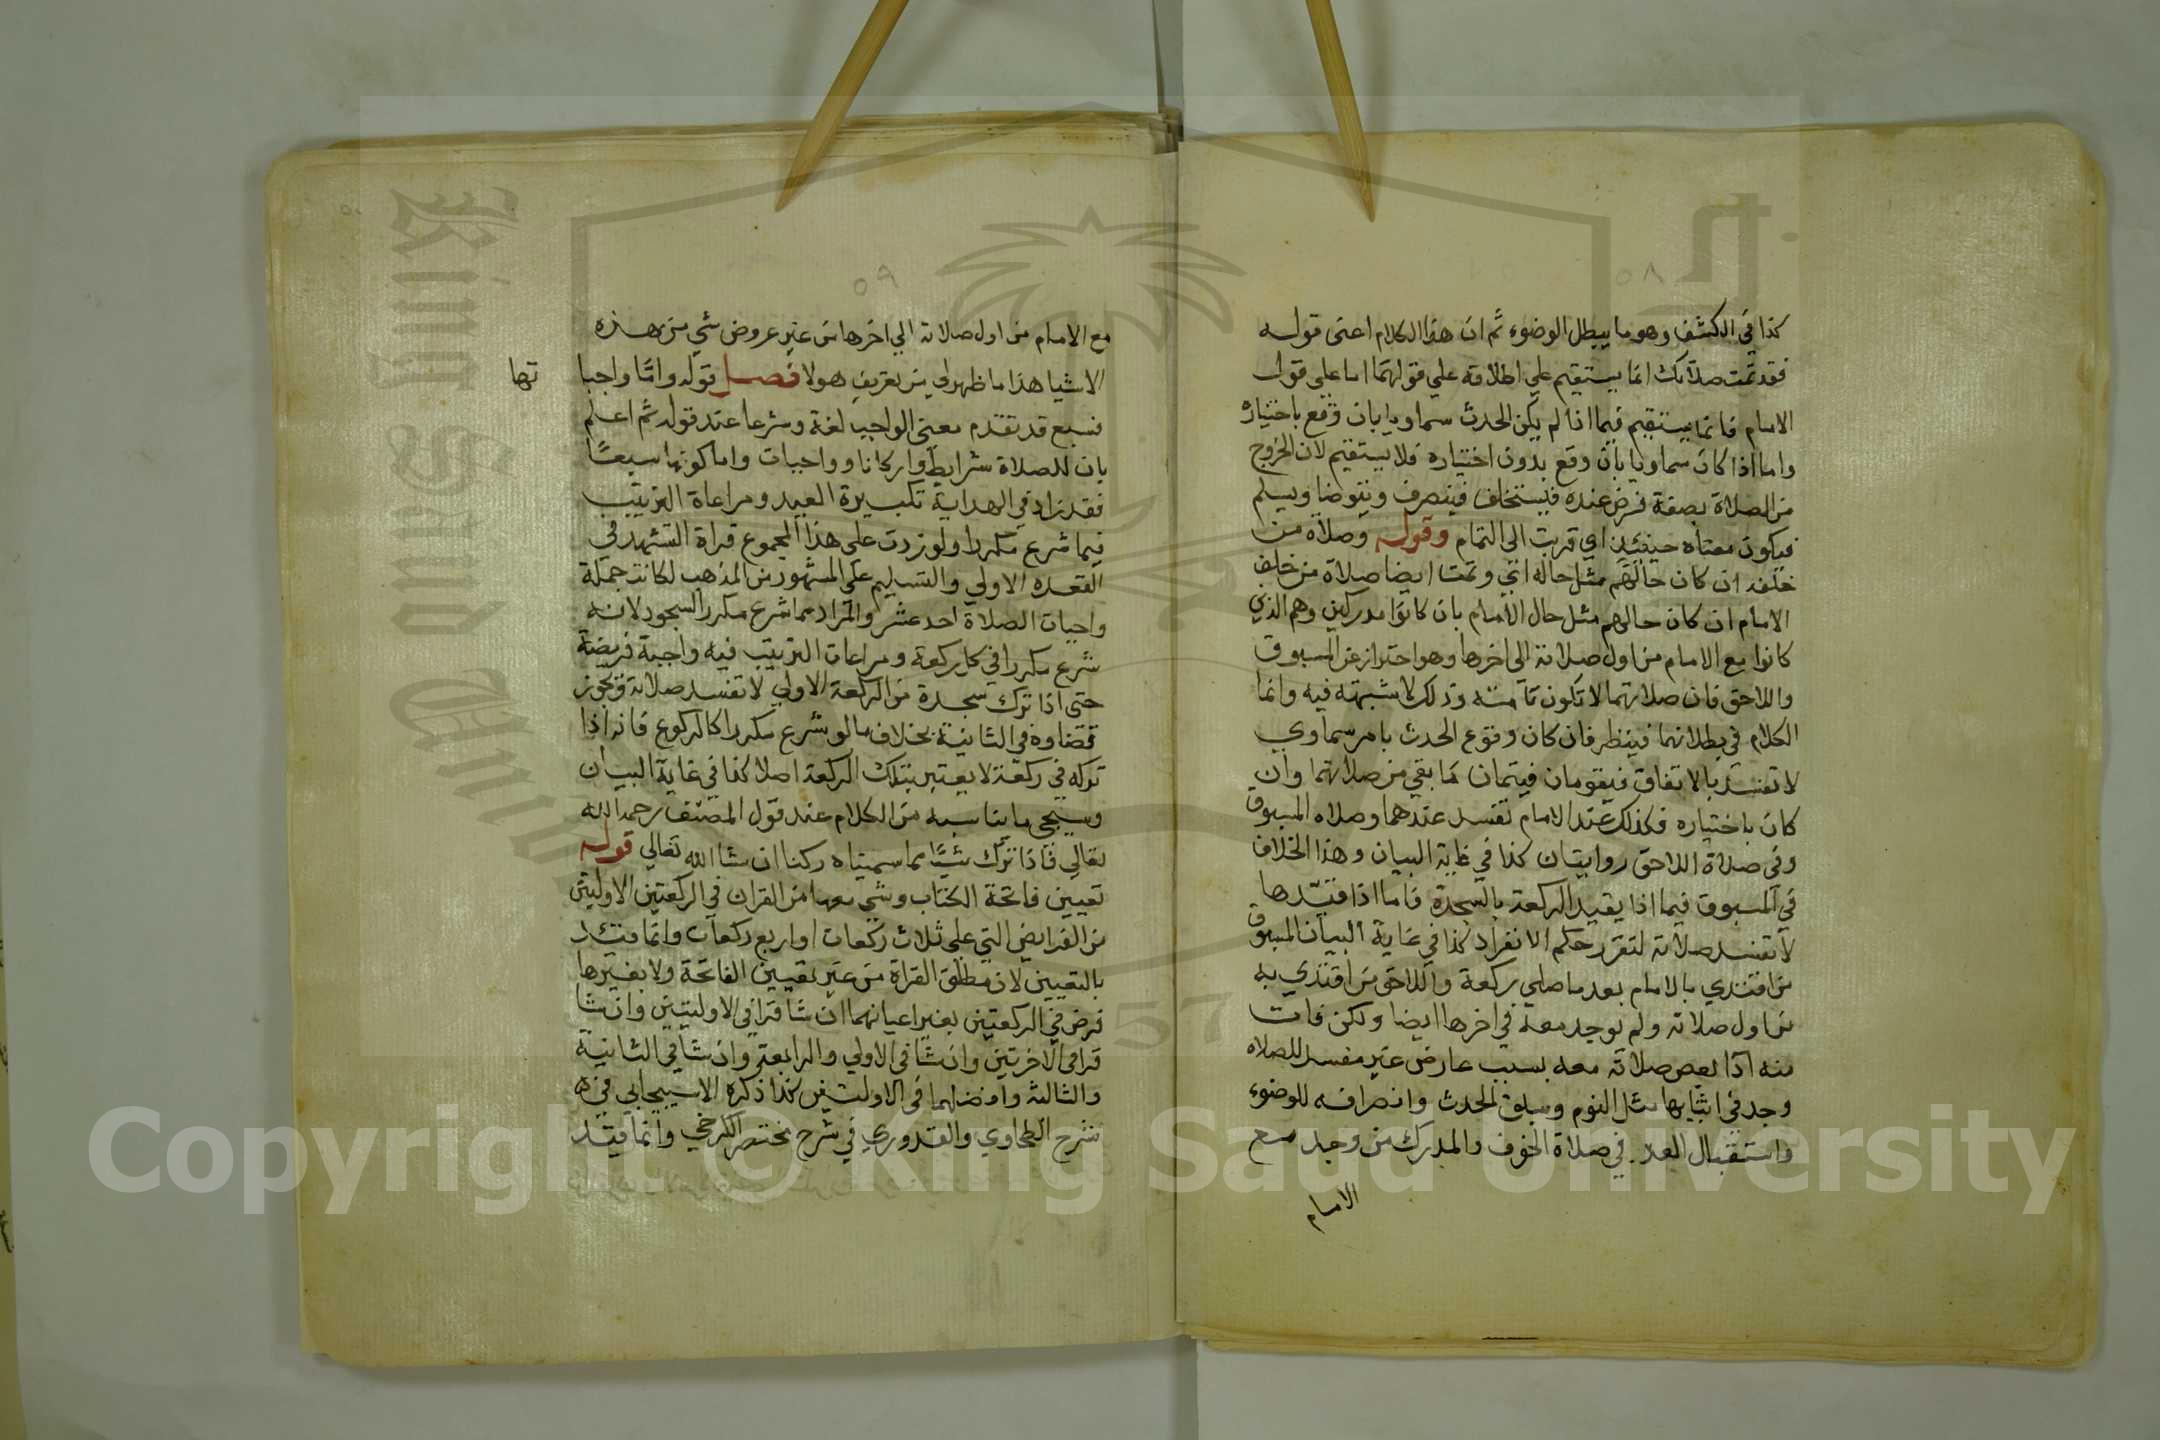 ٥٨
كذا في الكشف وهو ما يبطل الوضوء ثم ان هذا الكلام اعنى قوله
فقد تمت صلاتك انما يستقيم علي اطلاقه علي قولهما اما على قول
الامام فانما يستقيم فيما اذا لم يكن الحدث سماويا بان وقع باختياره
واما اذا كان سماويا بان وقع بدون اختياره فلا يستقيم لان الخروج
من الصلاة بصفة فرض عنده فيستخلف فينصرف ويتوضا ويسلم
فيكون معناه حينئذ اي قربت الى التمام وقوله وصلاة من
خلفه ان كان حالهم مثل حاله اي وتمت ايضا صلاة من خلف
الامام ان كان حالهم مثل حال الامام بان كانوا مدركين وهم الذي
كانوا مع الامام من اول صلاته الى اخرها وهو احتراز عن المسبوق
واللاحق فان صلاتهما لا تكون تامته وذلك لا شبهته فيه وانما
الكلام في بطلانهما فينظر فان كان وقوع الحدث بامر سماوي
لا تفسد بالاتفاق فيقومان فيتمان ما بقي من صلاتهما وان
كان باختياره فكذلك عند الامام تفسد عندهما وصلاه المسبوق
وفى صلاة اللاحق روايتان كذا في غاية البيان وهذا الخلاف
في المسبوق فيما اذا يقيد الركعة بالسجدة فاما اذا قيدها
لا تفسد صلاته لتقرر حكم الانفراد كذا في غاية البيان المسبوق
من اقتدي بالامام بعد ما صلى ركعة واللاحق من اقتدي به
من اول صلاته ولم يوجد معه في اخرها ايضا ولكن فات
منه اذا بعض صلاته معه بسبب عارض غير مفسد للصلاه
وجد في اثنايها مثل النوم وسبق الحدث وانصرافه للوضوء
واستقبال العدو في صلاة الخوف والمدرك من وجد مع
الامام
٥٩
مع الامام من اول صلاته الي اخرها من غير عروض شي من هذه
الاشيا هذا ما ظهر لي من تعريف هولا فصل قوله واما واجبا
تها
فسبع قد تقدم معنى الواجب لغة وشرعا عند قوله ثم اعلم
بان للصلاة شرايط واركانا وواجبات واما كونها سبعا
فقد زاد في الهداية تكبيرة العيد ومراعاة الترتيب
فيما شرع مكررا ولو زدت على هذا المجموع قراة التشهد في
القعده الاولي والتسليم على المشهور من المذهب لكانت جملة
واجبات الصلاة احد عشر والمراد مما شرع مكررا السجود لانه
شرع مكررا في كل ركعة ومراعات الترتيب فيه واجبة فريضة
حتى اذا ترك سجدة من الركعة الاولي لا تفسد صلاته ويجوز
قضاوه في الثانية بخلاف ما لو شرع مكررا كالركوع فانه اذا
تركه في ركعة لا يعتبر بتلك الركعة اصلا كذا في غاية البيان
وسيجي ما يناسبه من الكلام عند قول المصنف رحمه الله
تعالي فاذا ترك شيئا مما سميناه ركنا ان شا الله تعالي قوله
تعيين فاتحة الكتاب وشي معها من القران في الركعتين الاوليتين
من الفرايض التي على ثلاث ركعات او اربع ركعات وانما قيد
بالتعيين لان مطلق القراة من غير تعيين الفاتحة ولا بغيرها
فرض في الركعتين بغير اعيانهما ان شا قرا في الاوليتين وان شا
قرا في الاخرتين وان شا في الاولي والرابعة وان شا في الثانية
والثالثة وافضلهما في الاوليتين كذا ذكره الاسبيجابي في
شرح الطحاوي والقدوري في شرح مختصر الكرخي وانما قيد
King Saud University
1957
Copyright © King Saud University